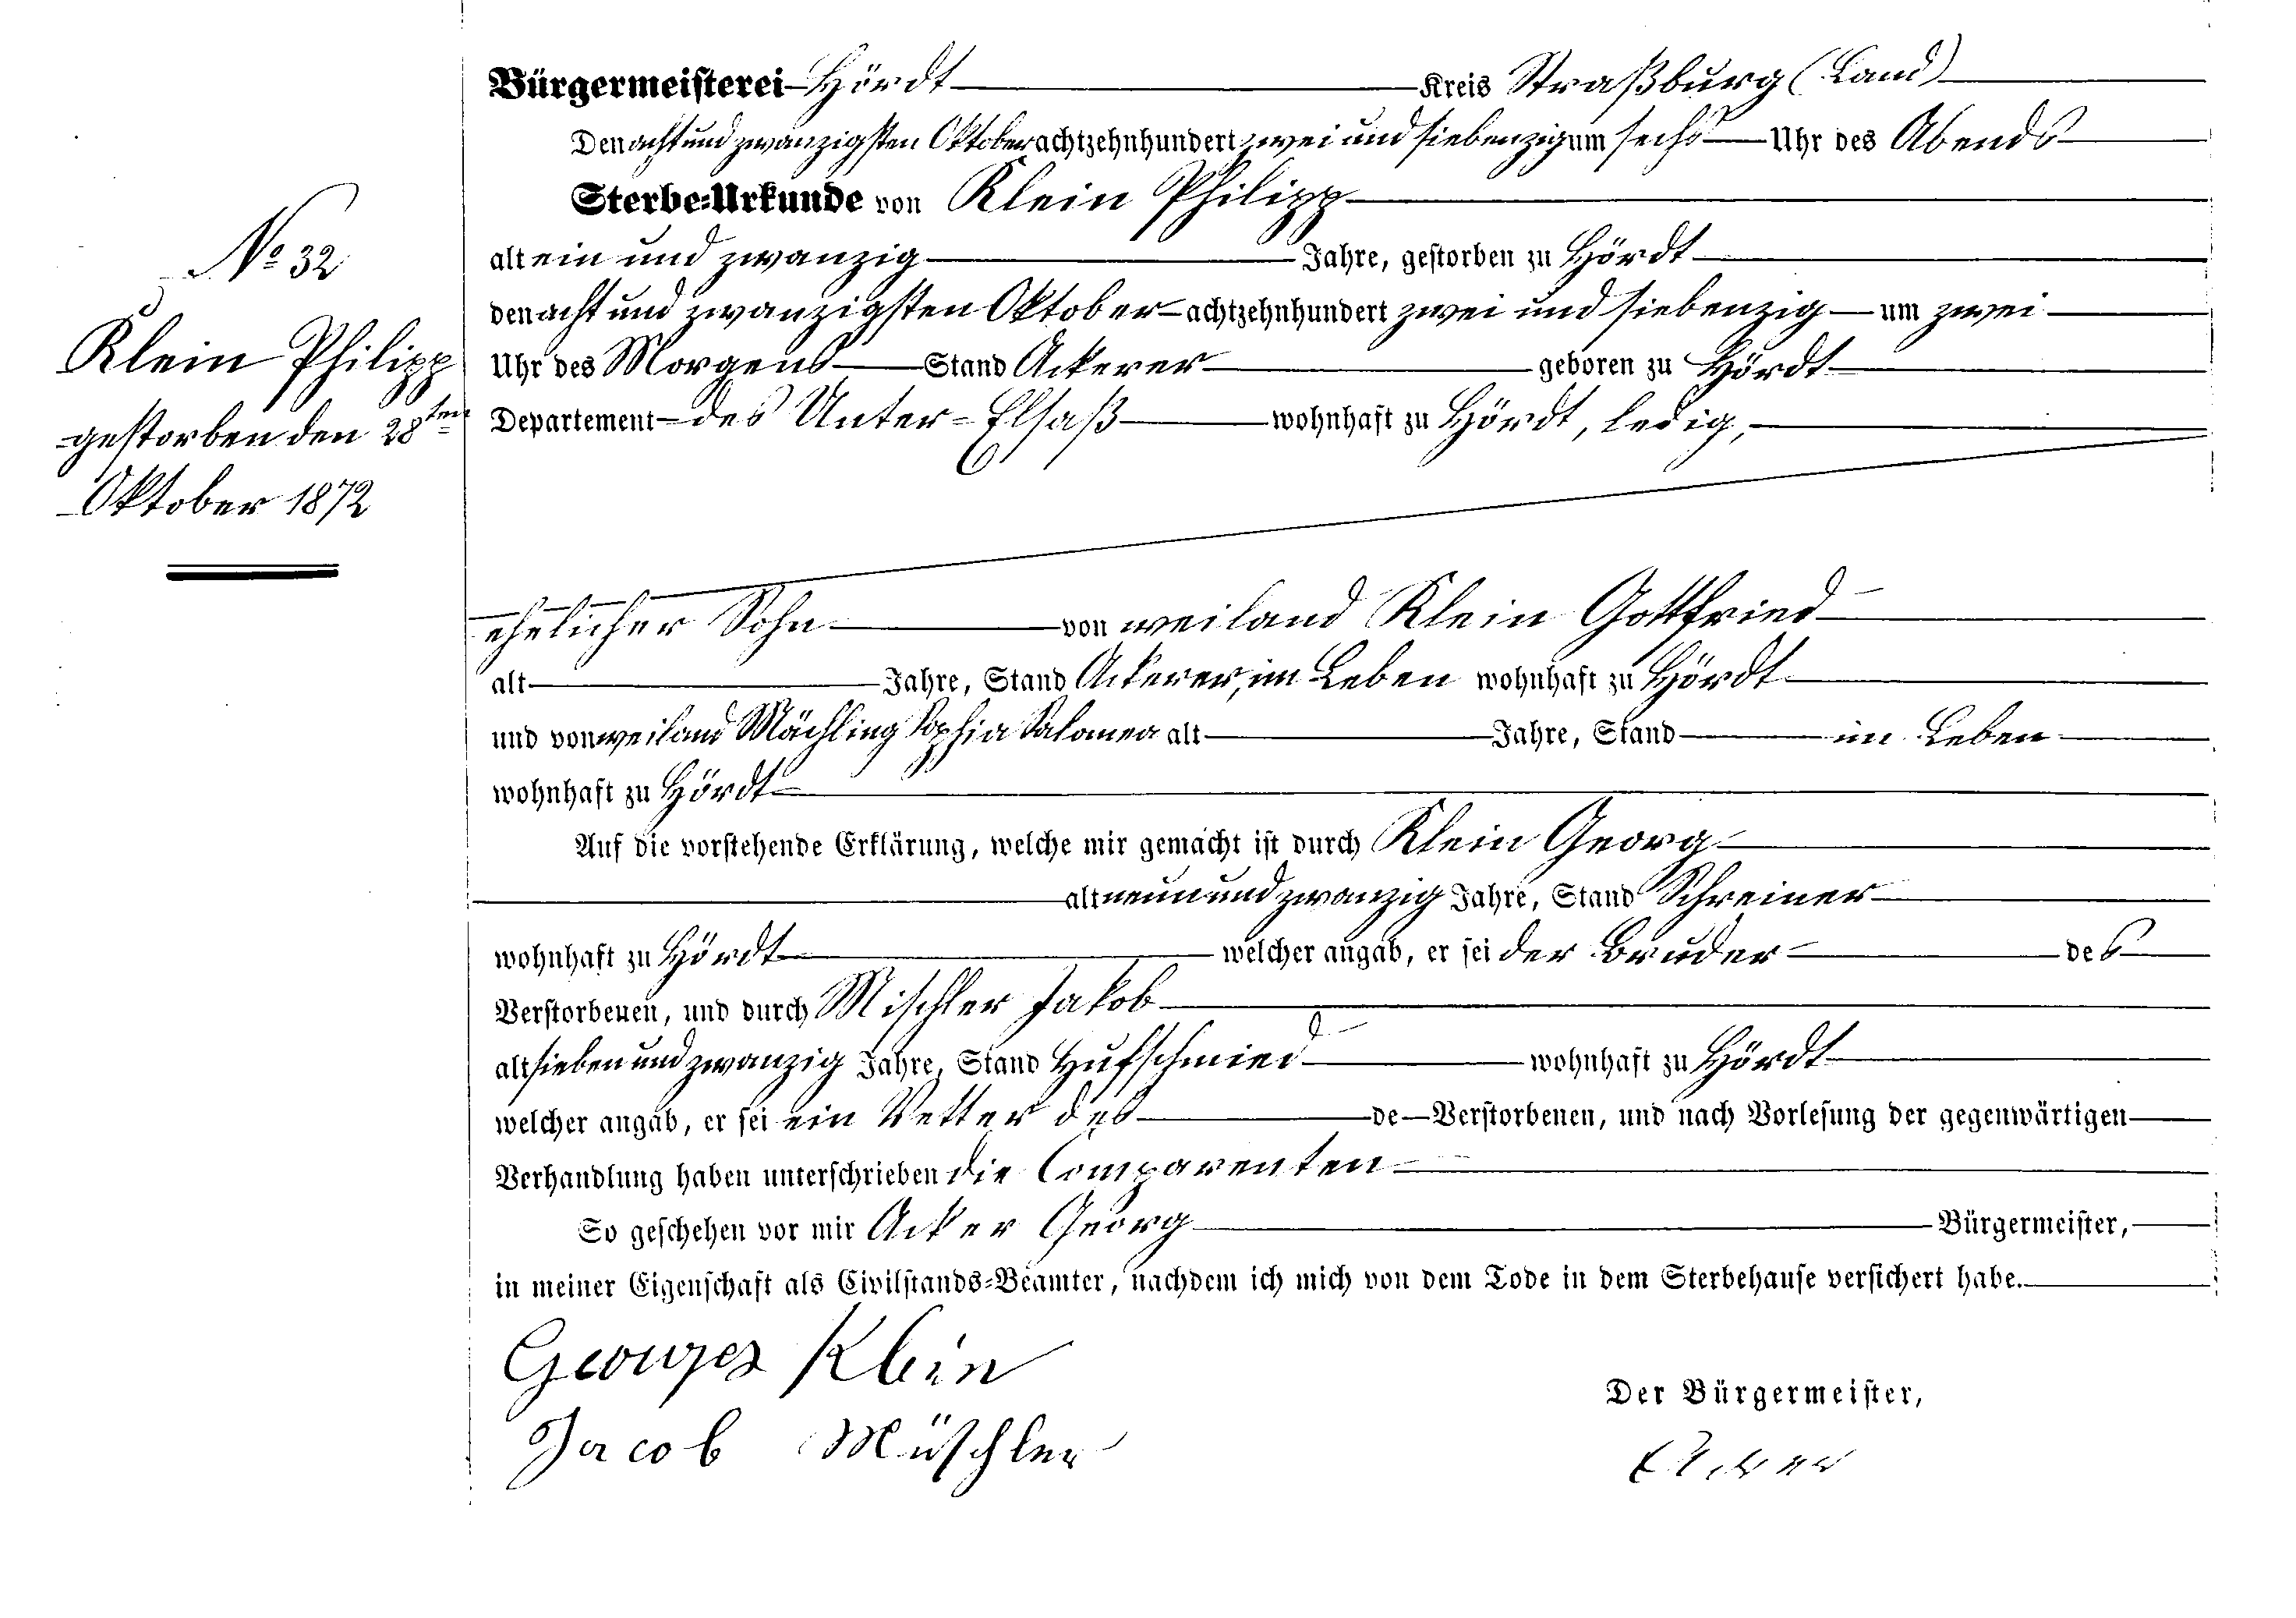 Bürgermeisterei Hördt Kreis Straßburg (Land)
Den acht und zwanzigsten Oktober achtzehnhundert zwei und siebenzig um sechs Uhr des Abends
Sterbe-Urkunde von Klein Philipp
alt ein und zwanzig Jahre, gestorben zu Hördt
den acht und zwanzigsten Oktober achtzehnhundert zwei und siebenzig um zwei
Uhr des Morgens Stand Ackerer geboren zu Hördt
Departement des Unter-Elsaß wohnhaft zu Hördt, ledig,
No 32
Klein Philipp
gestorben den 28ten
Oktober 1872
ehelicher Sohn von weiland Klein Gottfried
alt Jahre, Stand Ackerer, im Leben wohnhaft zu Hördt
und von weiland Mächling Sophia Salomea alt Jahre, Stand im Leben
wohnhaft zu Hördt
Auf die vorstehende Erklärung, welche mir gemacht ist durch Klein Georg
alt neun und zwanzig Jahre, Stand Schreiner
wohnhaft zu Hördt welcher angab, er sei der Bruder des
Verstorbenen, und durch Mischler Jakob
alt sieben und zwanzig Jahre, Stand Hufschmied wohnhaft zu Hördt
welcher angab, er sei ein Vetter des de Verstorbenen, und nach Vorlesung der gegenwärtigen
Verhandlung haben unterschrieben die Comparenten
So geschehen vor mir Acker Georg Bürgermeister,
in meiner Eigenschaft als Civilstands-Beamter, nachdem ich mich von dem Tode in dem Sterbehause versichert habe.
Georges Klein
Jacob Müschler
Der Bürgermeister,
Acker